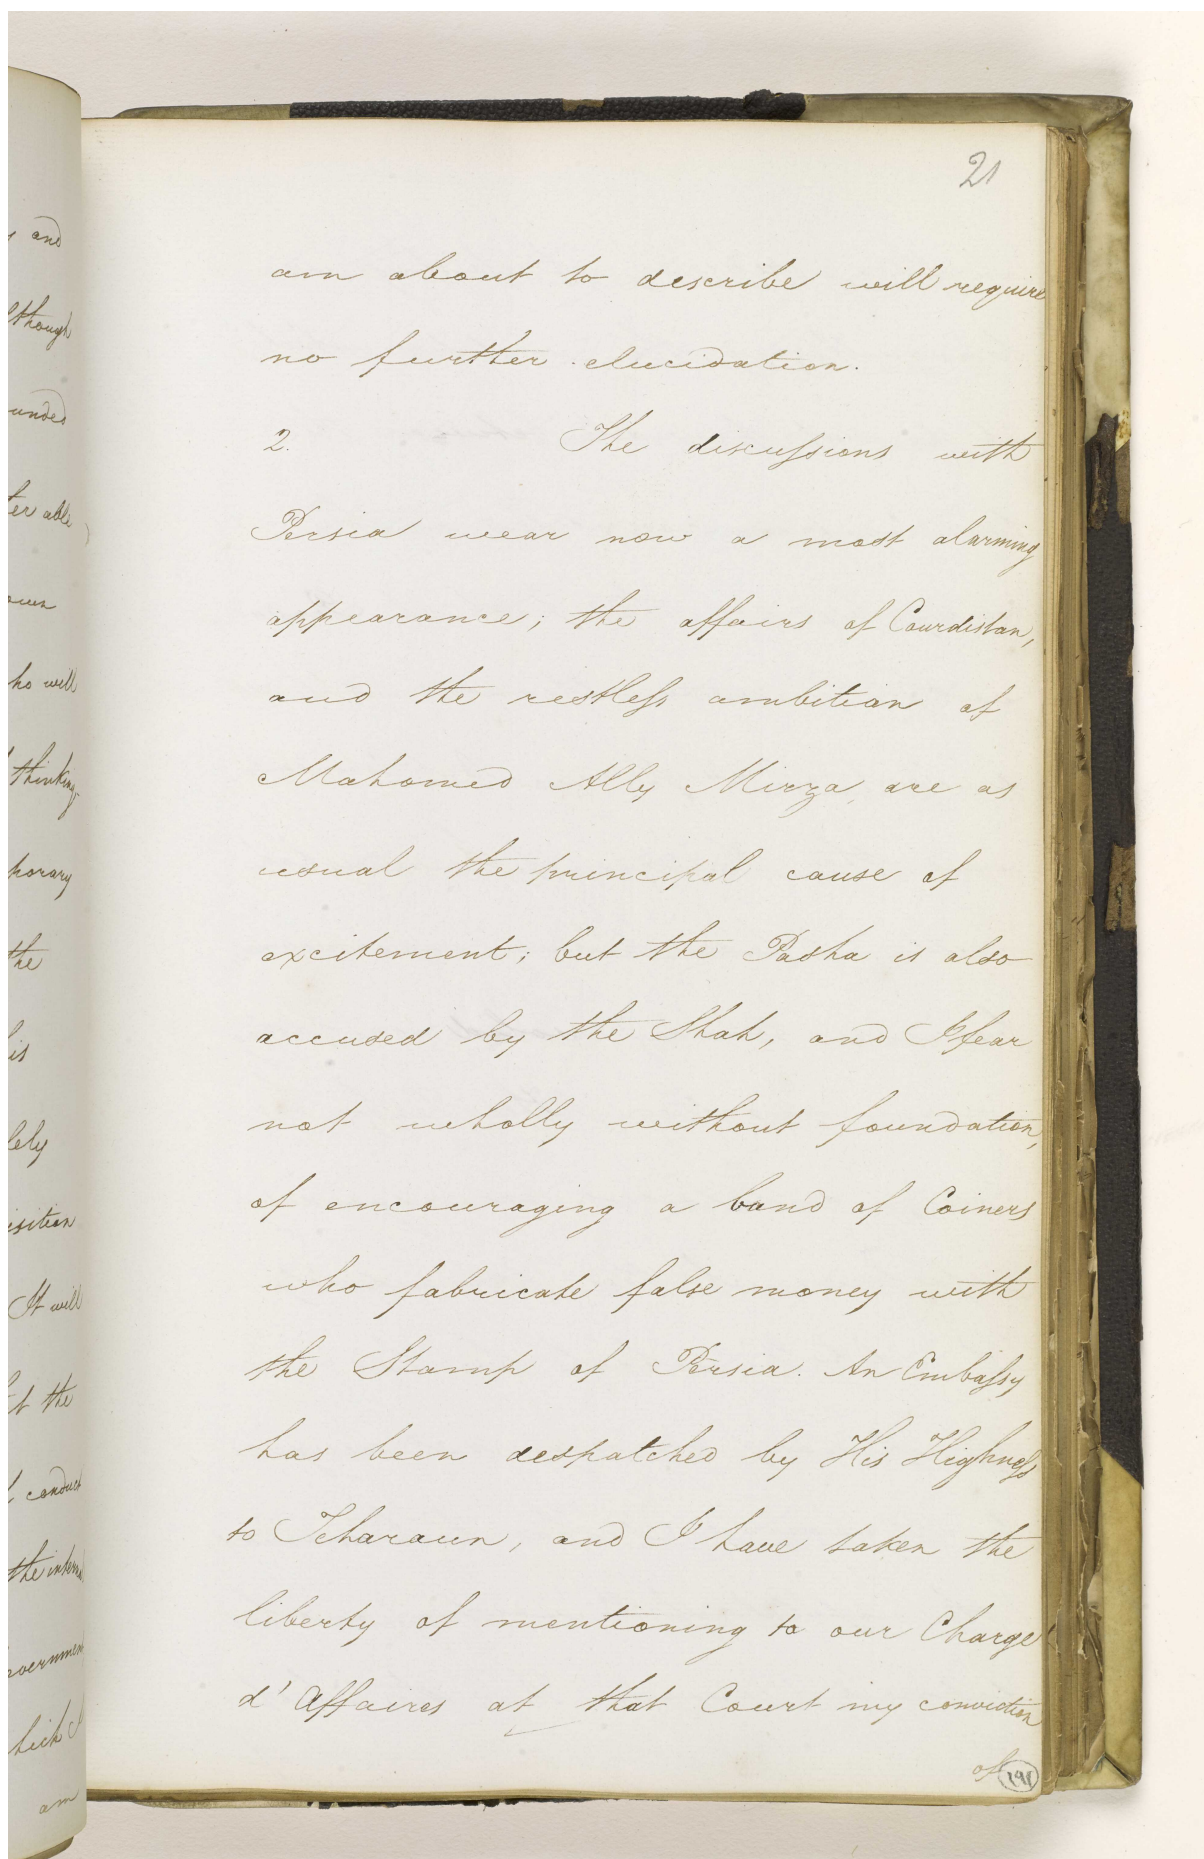 21
am about to describe will require
no further elucidation.
2. The discussions with
Persia wear now a most alarming
appearance; the affairs of Courdistan,
and the restless ambition of
Mahomed Ally Mirza, are as
usual the principal cause of
excitement; but the Pasha is also
accused by the Shah, and I fear
not wholly without foundation,
of encouraging a band of Coiners
who fabricate false money with
the Stamp of Persia. An Embassy
has been despatched by His Highness
to Teharaun, and I have taken the
liberty of mentioning to our Chargé
d'Affaires at that Court my conviction
of
191
and
though
unded
ter able
own
ho will
thinking
porary
the
his
lely
isition
It will
t the
conduct
the internal
overnment
hich I
am